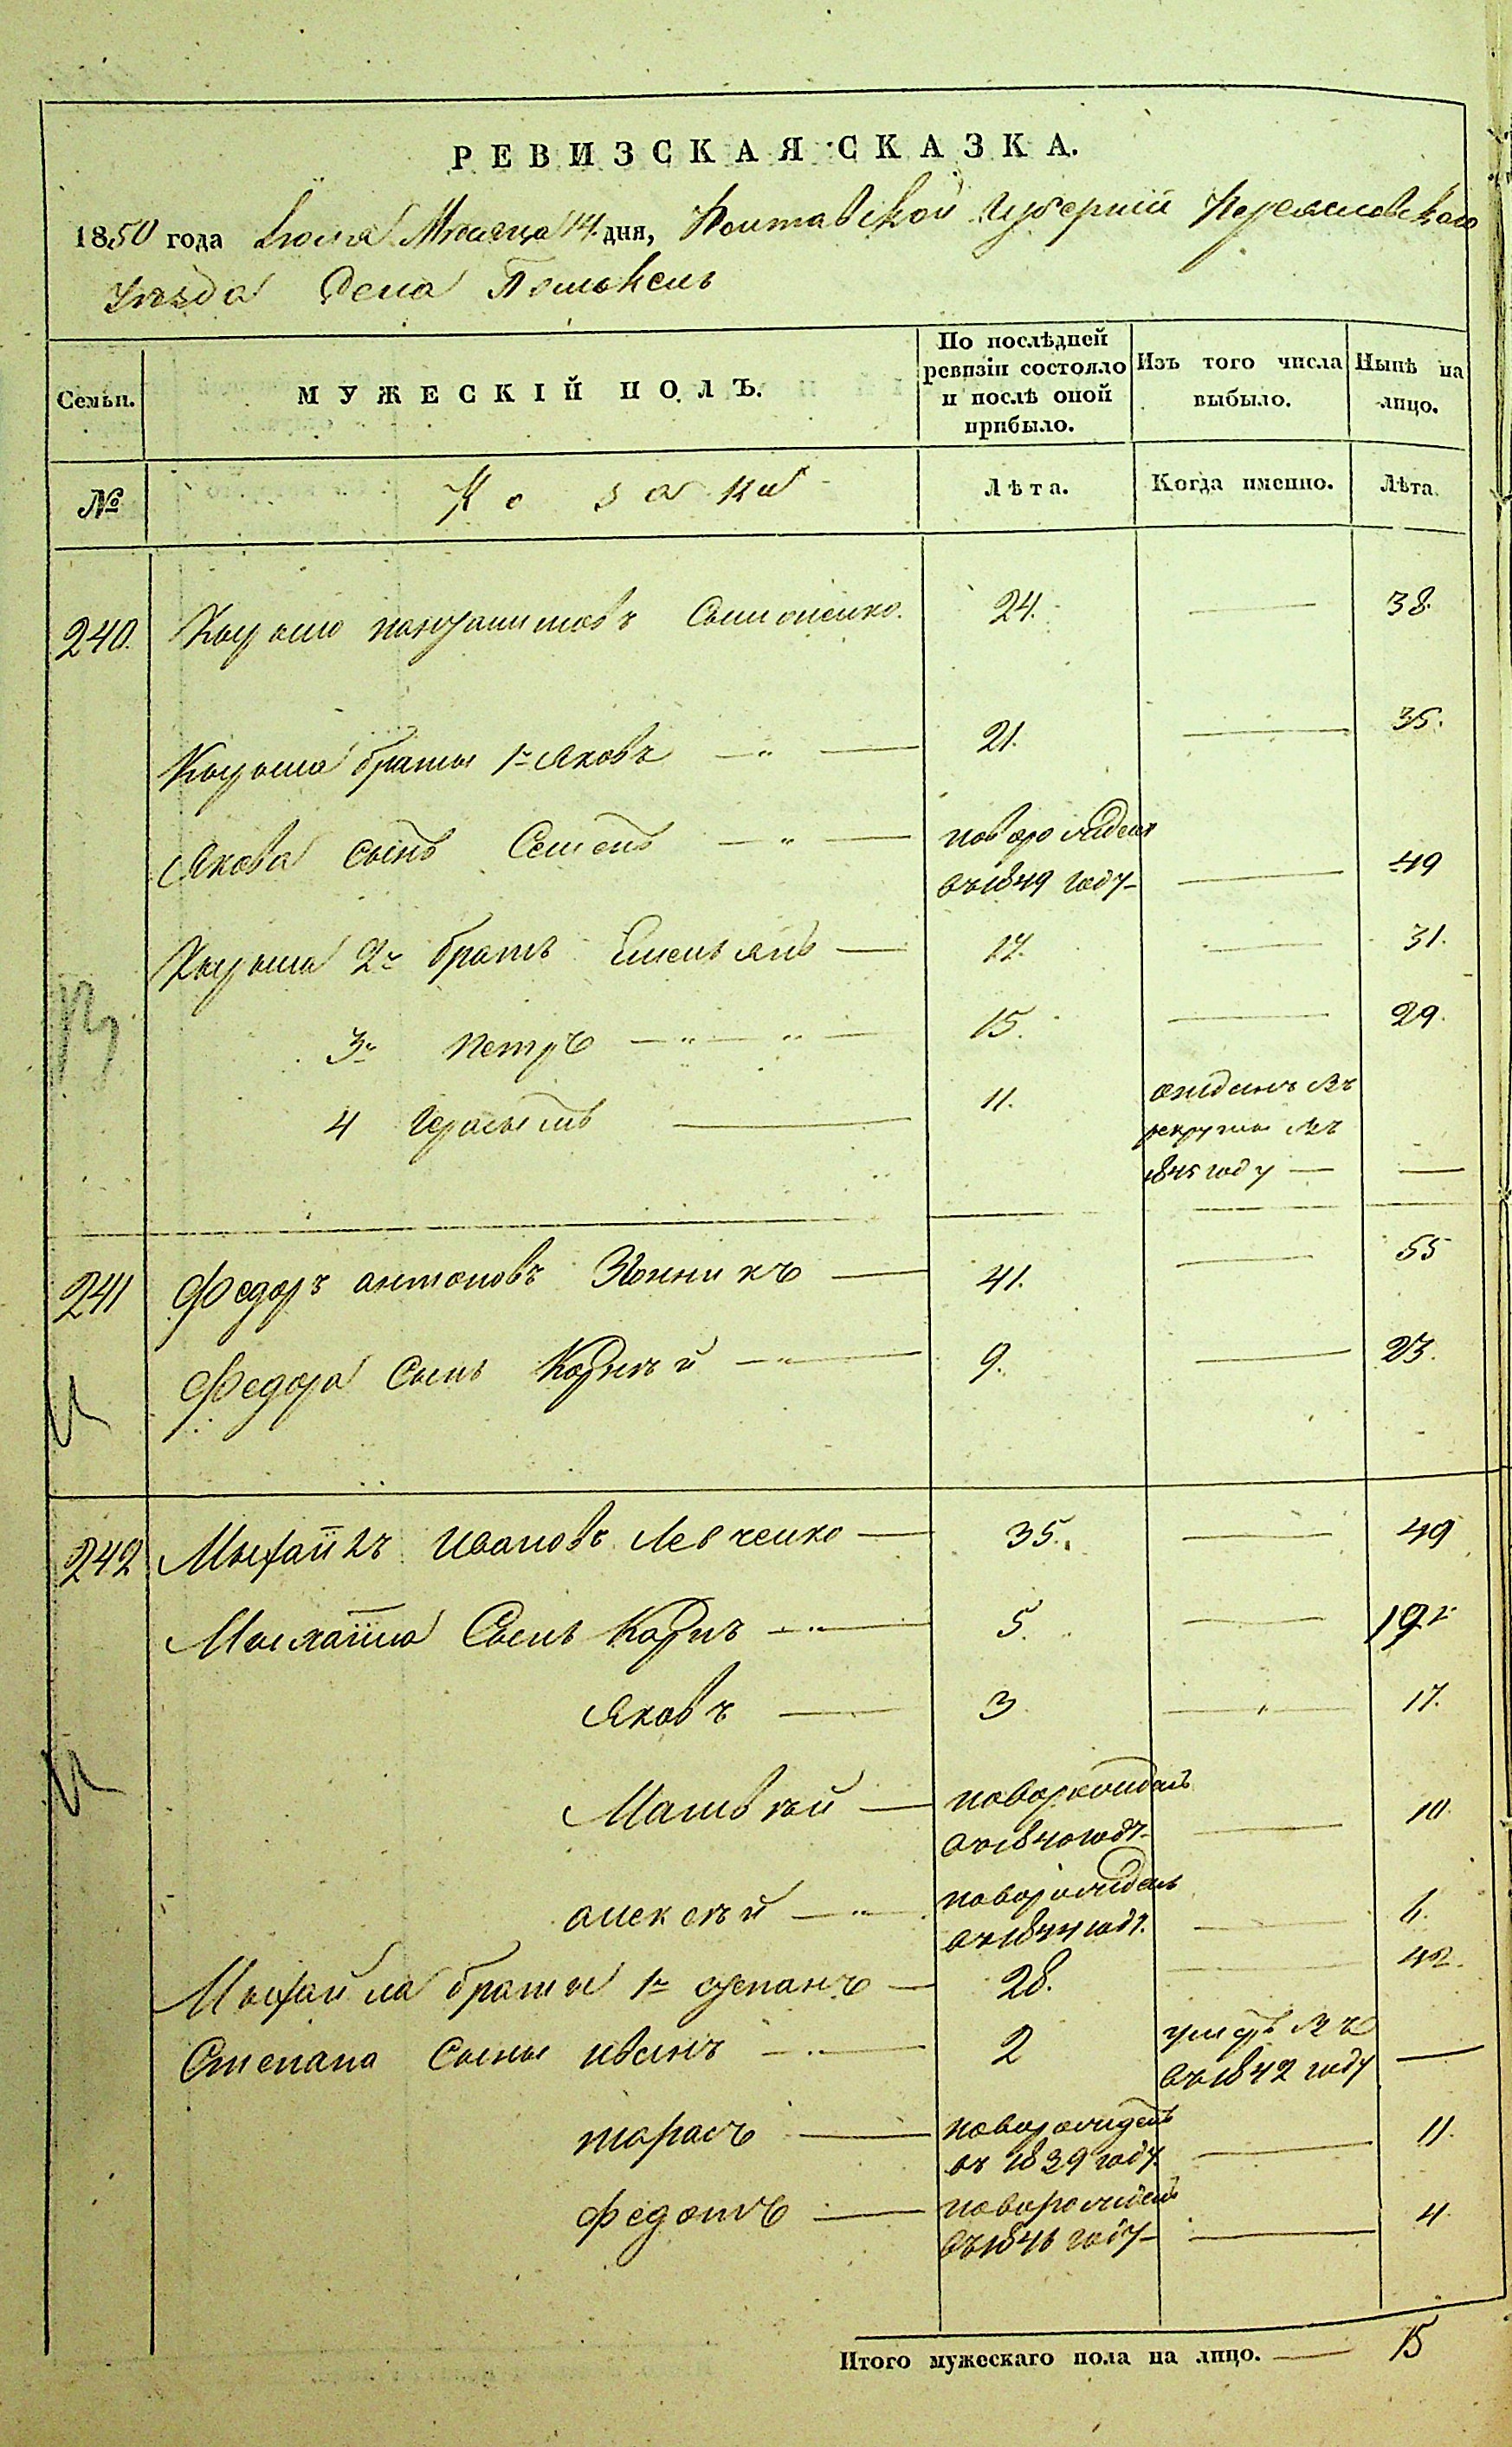 РЕВИЗСКАЯ СКАЗКА.
1850 года Июля Месяца 14 дня, Полтавской Губернии Переясловского
Уезда Села Помоклъ
Семьи. МУЖЕСКІЙ ПОЛЪ. По послѣдней ревизіи состояло и послѣ оной прибыло. Изъ того числа выбыло. Нынѣ на лицо.
№ Козаки Лѣта. Когда именно. Лѣта.
240. 24. — 38.
братья 1й Яковъ — 21. — 35.
Якова сынъ Семенъ — новорожденъ
въ 1849 году — — 49
2й братъ Емельянъ — 17. — 31.
3й Петръ — 15. — 29.
4 Герасимъ — 11. отданъ въ
рекруты въ
1845 году — —
241 Федоръ антоновъ — 41. — 55
Федора Сынъ Корнѣй — 9. — 23.
242 Михайлъ Ивановъ Левченко — 35. — 49
Михайла Сынъ Карпъ — 5. — 19
Яковъ — 3 — 17.
Матвѣй — новорожденъ
въ 1840 году — — 10.
алексѣй — новорожденъ
въ 1844 году. — 6.
Михайла братья 1й степанъ — 28. — 42.
Степана Сыны иванъ — 2 умеръ въ
въ 1842 году —
тарасъ — новорожденъ
въ 1839 году. — 11.
федотъ — новорожденъ
въ 1846 году — — 4.
Итого мужескаго пола на лицо. — 15